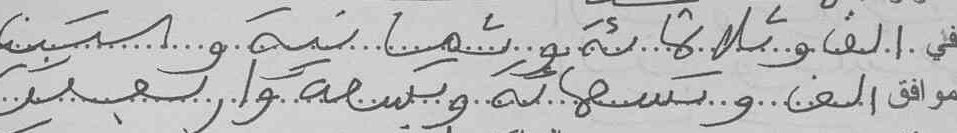 في الف وثلاثمائة وثمانية والستين
موافق الف وتسعمائة وتسعة واربعين